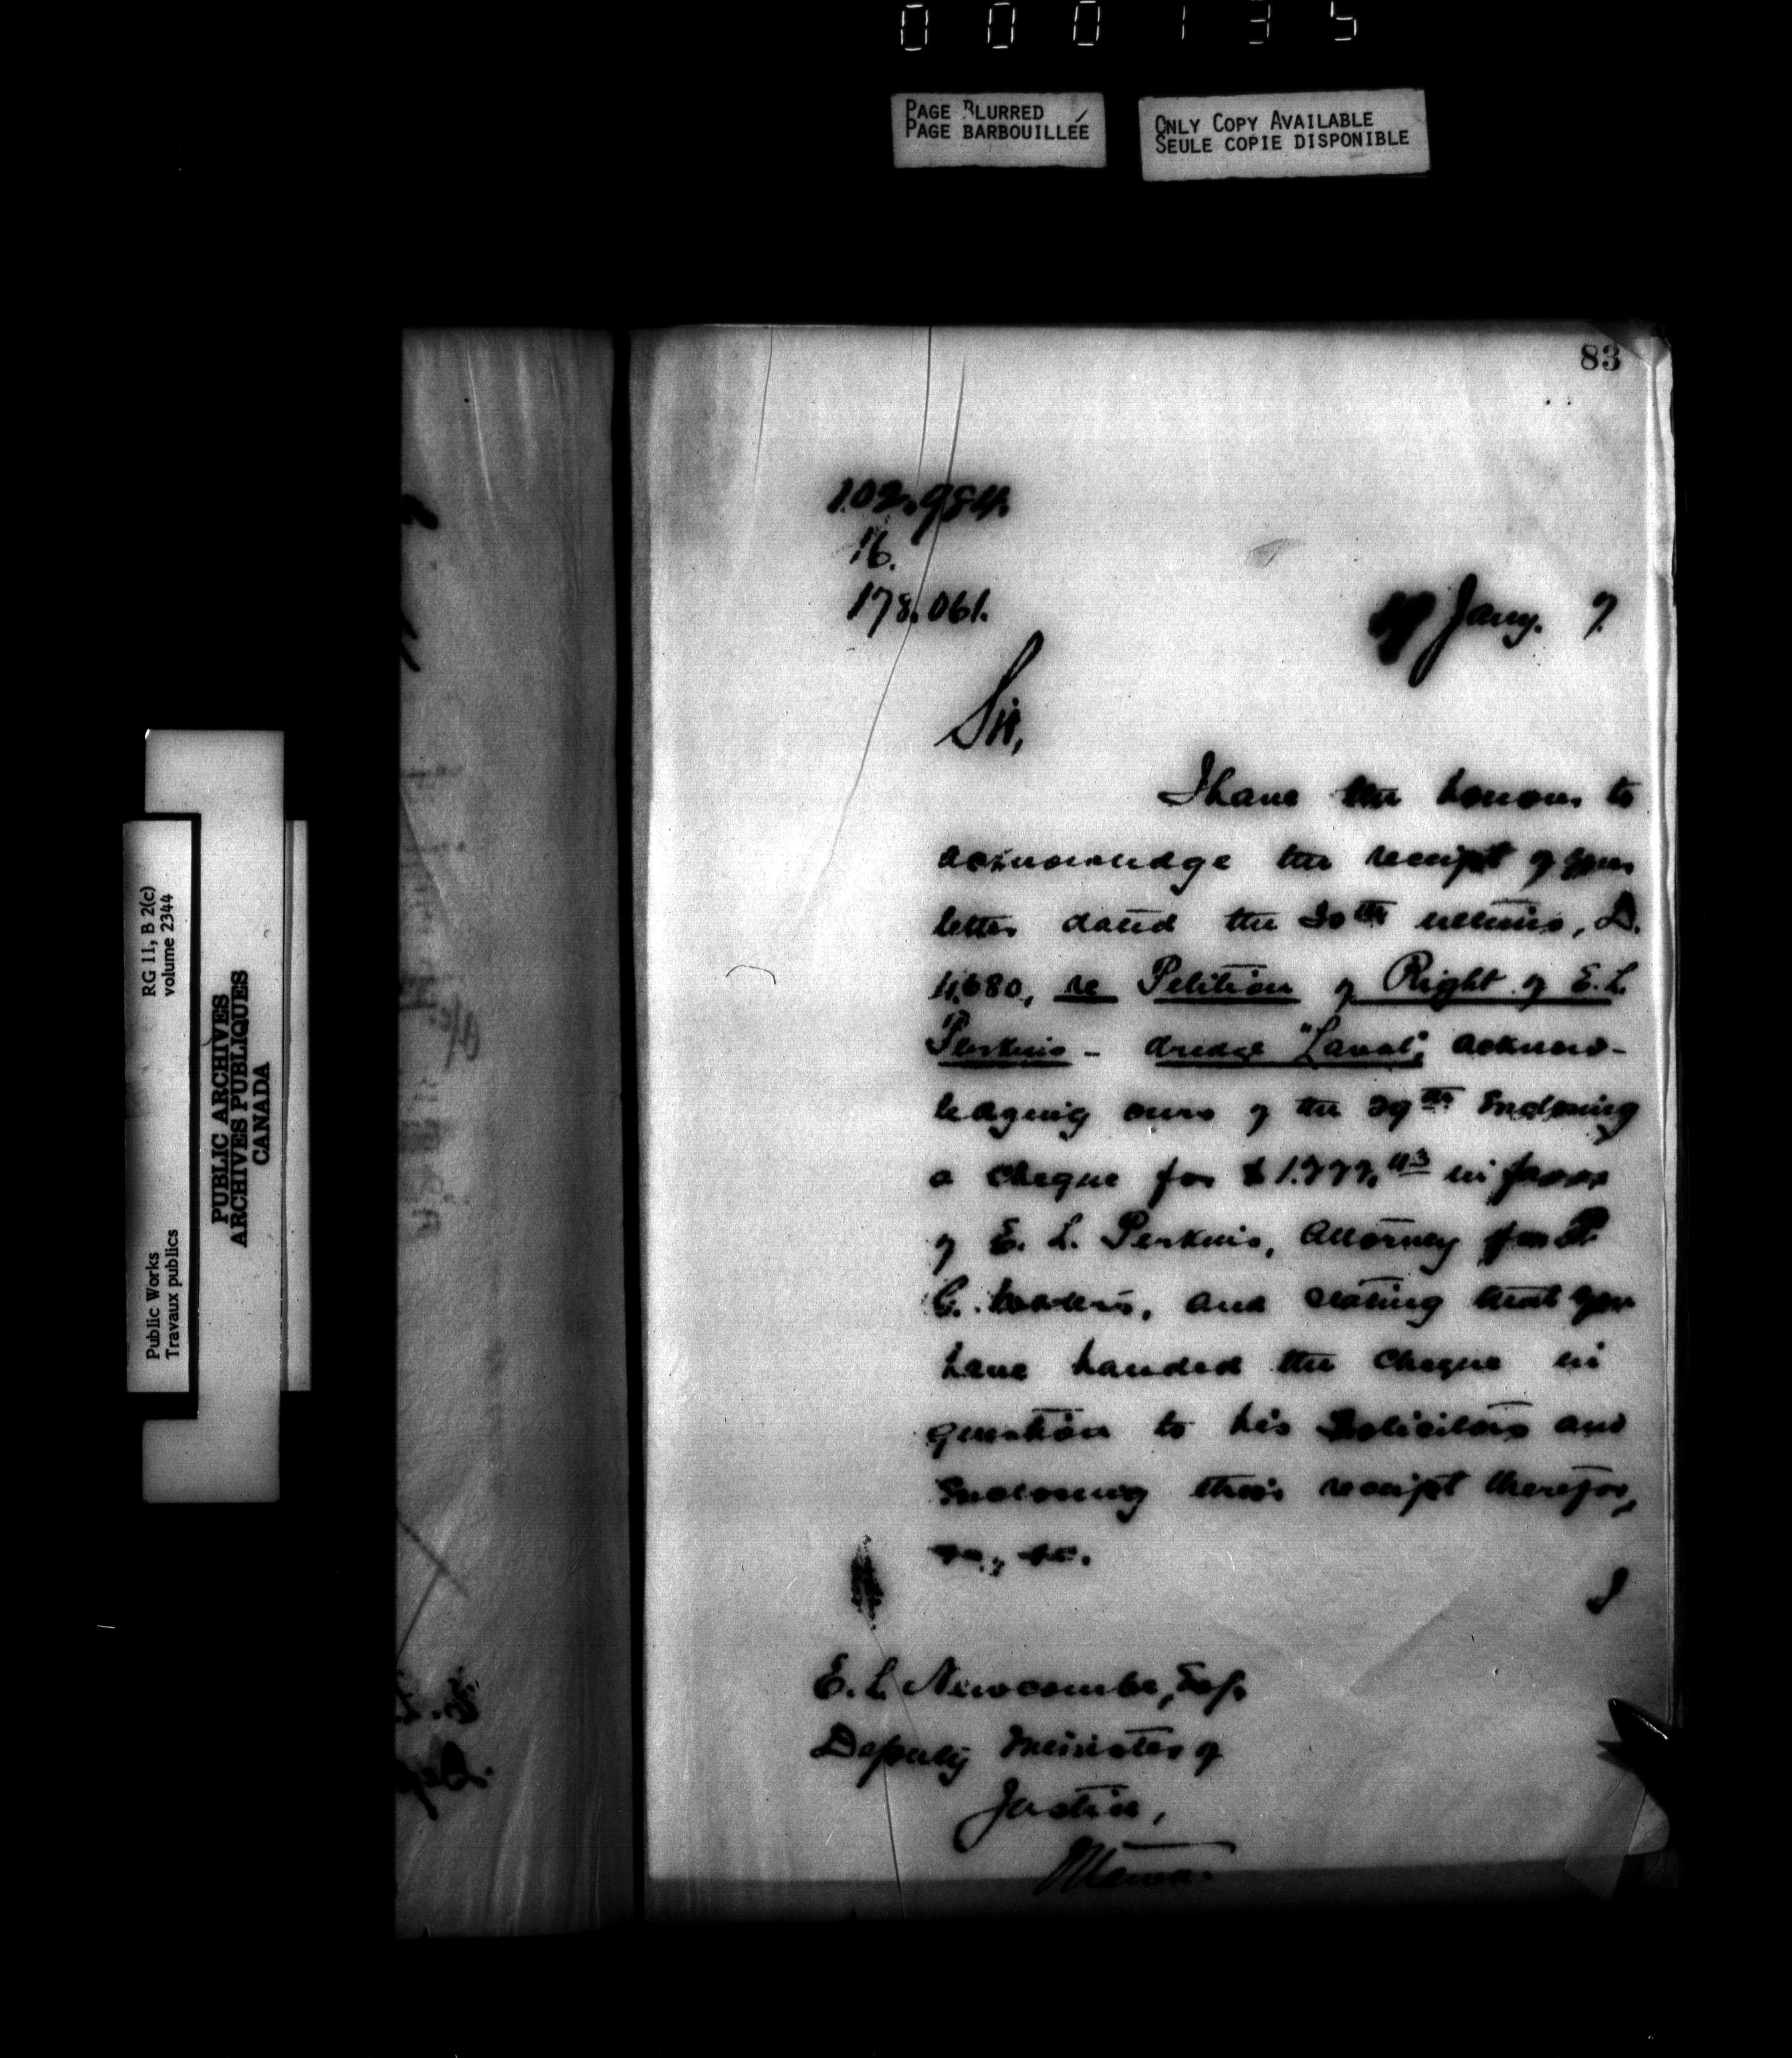 000135
PAGE BLURRED
PAGE BARBOUILLÉE
ONLY COPY AVAILABLE
SEULE COPIE DISPONIBLE
RG 11, B 2(c)
volume 2344
PUBLIC ARCHIVES
ARCHIVES PUBLIQUES
CANADA
Public Works
Travaux publics
83
102.984.
16.
178.061.
Jany. 7.
Sir,
I have the honour to
acknowledge the receipt of your
letter dated the 30th ultimo, D.
11,680, re Petition of Right of E. L.
Perkins - dredge "Laval", acknow-
ledging ours of the 29th enclosing
a cheque for $1.777.43 in favor
of E. L. Perkins, Attorney for P.
C. and stating that you
have handed the cheque in
question to his Solicitors and
enclosing their receipt therefor,
&c., &c.
E. L. Newcombe, Esq.
Deputy Minister of
Justice,
Ottawa.